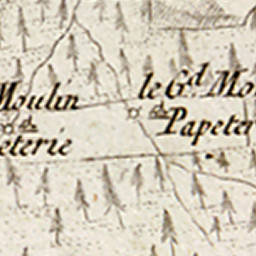 Moulin
eterie
le G.d Mo
Papeter